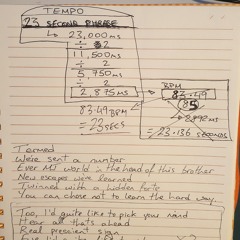 TEMPO
23 SECOND PHRASE
↳ 23,000ms
÷ 2
11,500ms
÷ 2
5,750ms
÷ 2
2,875ms
BPM
83.49
85
↳ 2,892ms
= 23.136 SECONDS
83.49BPM
= 23 SECS
Termed
We're sent a number
Ever MJ world in the head of this brother
New escapes we learned
Twinned with a hidden forte
You can chose not to learn the hard way
Too, I'd quite like to pick your mind
Fear all that's ahead
Real prescient sign